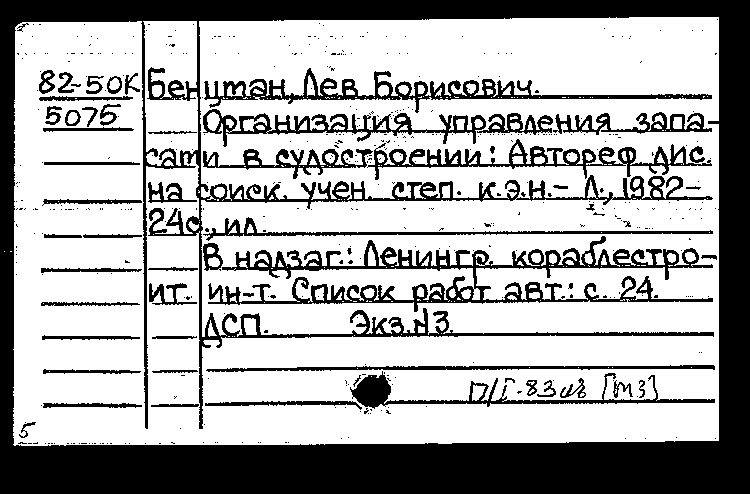 82-50К Бенцман, Лев Борисович.
5075 Организация управления запа-
сами в судостроении: Автореф. дис.
на соиск. учен. степ. к.э.н.- Л., 1982-
24с., ил.
В надзаг.: Ленингр. кораблестро-
ит. ин-т. Список работ авт.: с. 24.
ДСП. Экз.N3.
П/I-83 [тз]
5